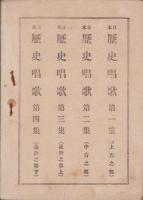 日本歴史唱歌 第一集（上古之部）
日本歴史唱歌 第二集（中古之部）
日本歴史唱歌 第三集（近世之部上）
日本歴史唱歌 第四集（近世之部下）